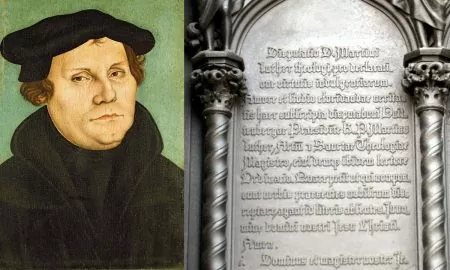 Disputatio D. Martini
Luther theologi, pro declarati
one virtutis indulgentiarum.
Amore et studio elucidandae verita
tis haec subscripta disputabuntur Witt
enbergae
Luther, Sanctae Theologiae
Magistro, ibidem lectore
Ordinario. Quare petit ut qui
verbis praesentes nobiscum dis
literis absentes, In no
mine domini nostri Jesu Christi.
Amen.
i. Dominus et magister noster Je